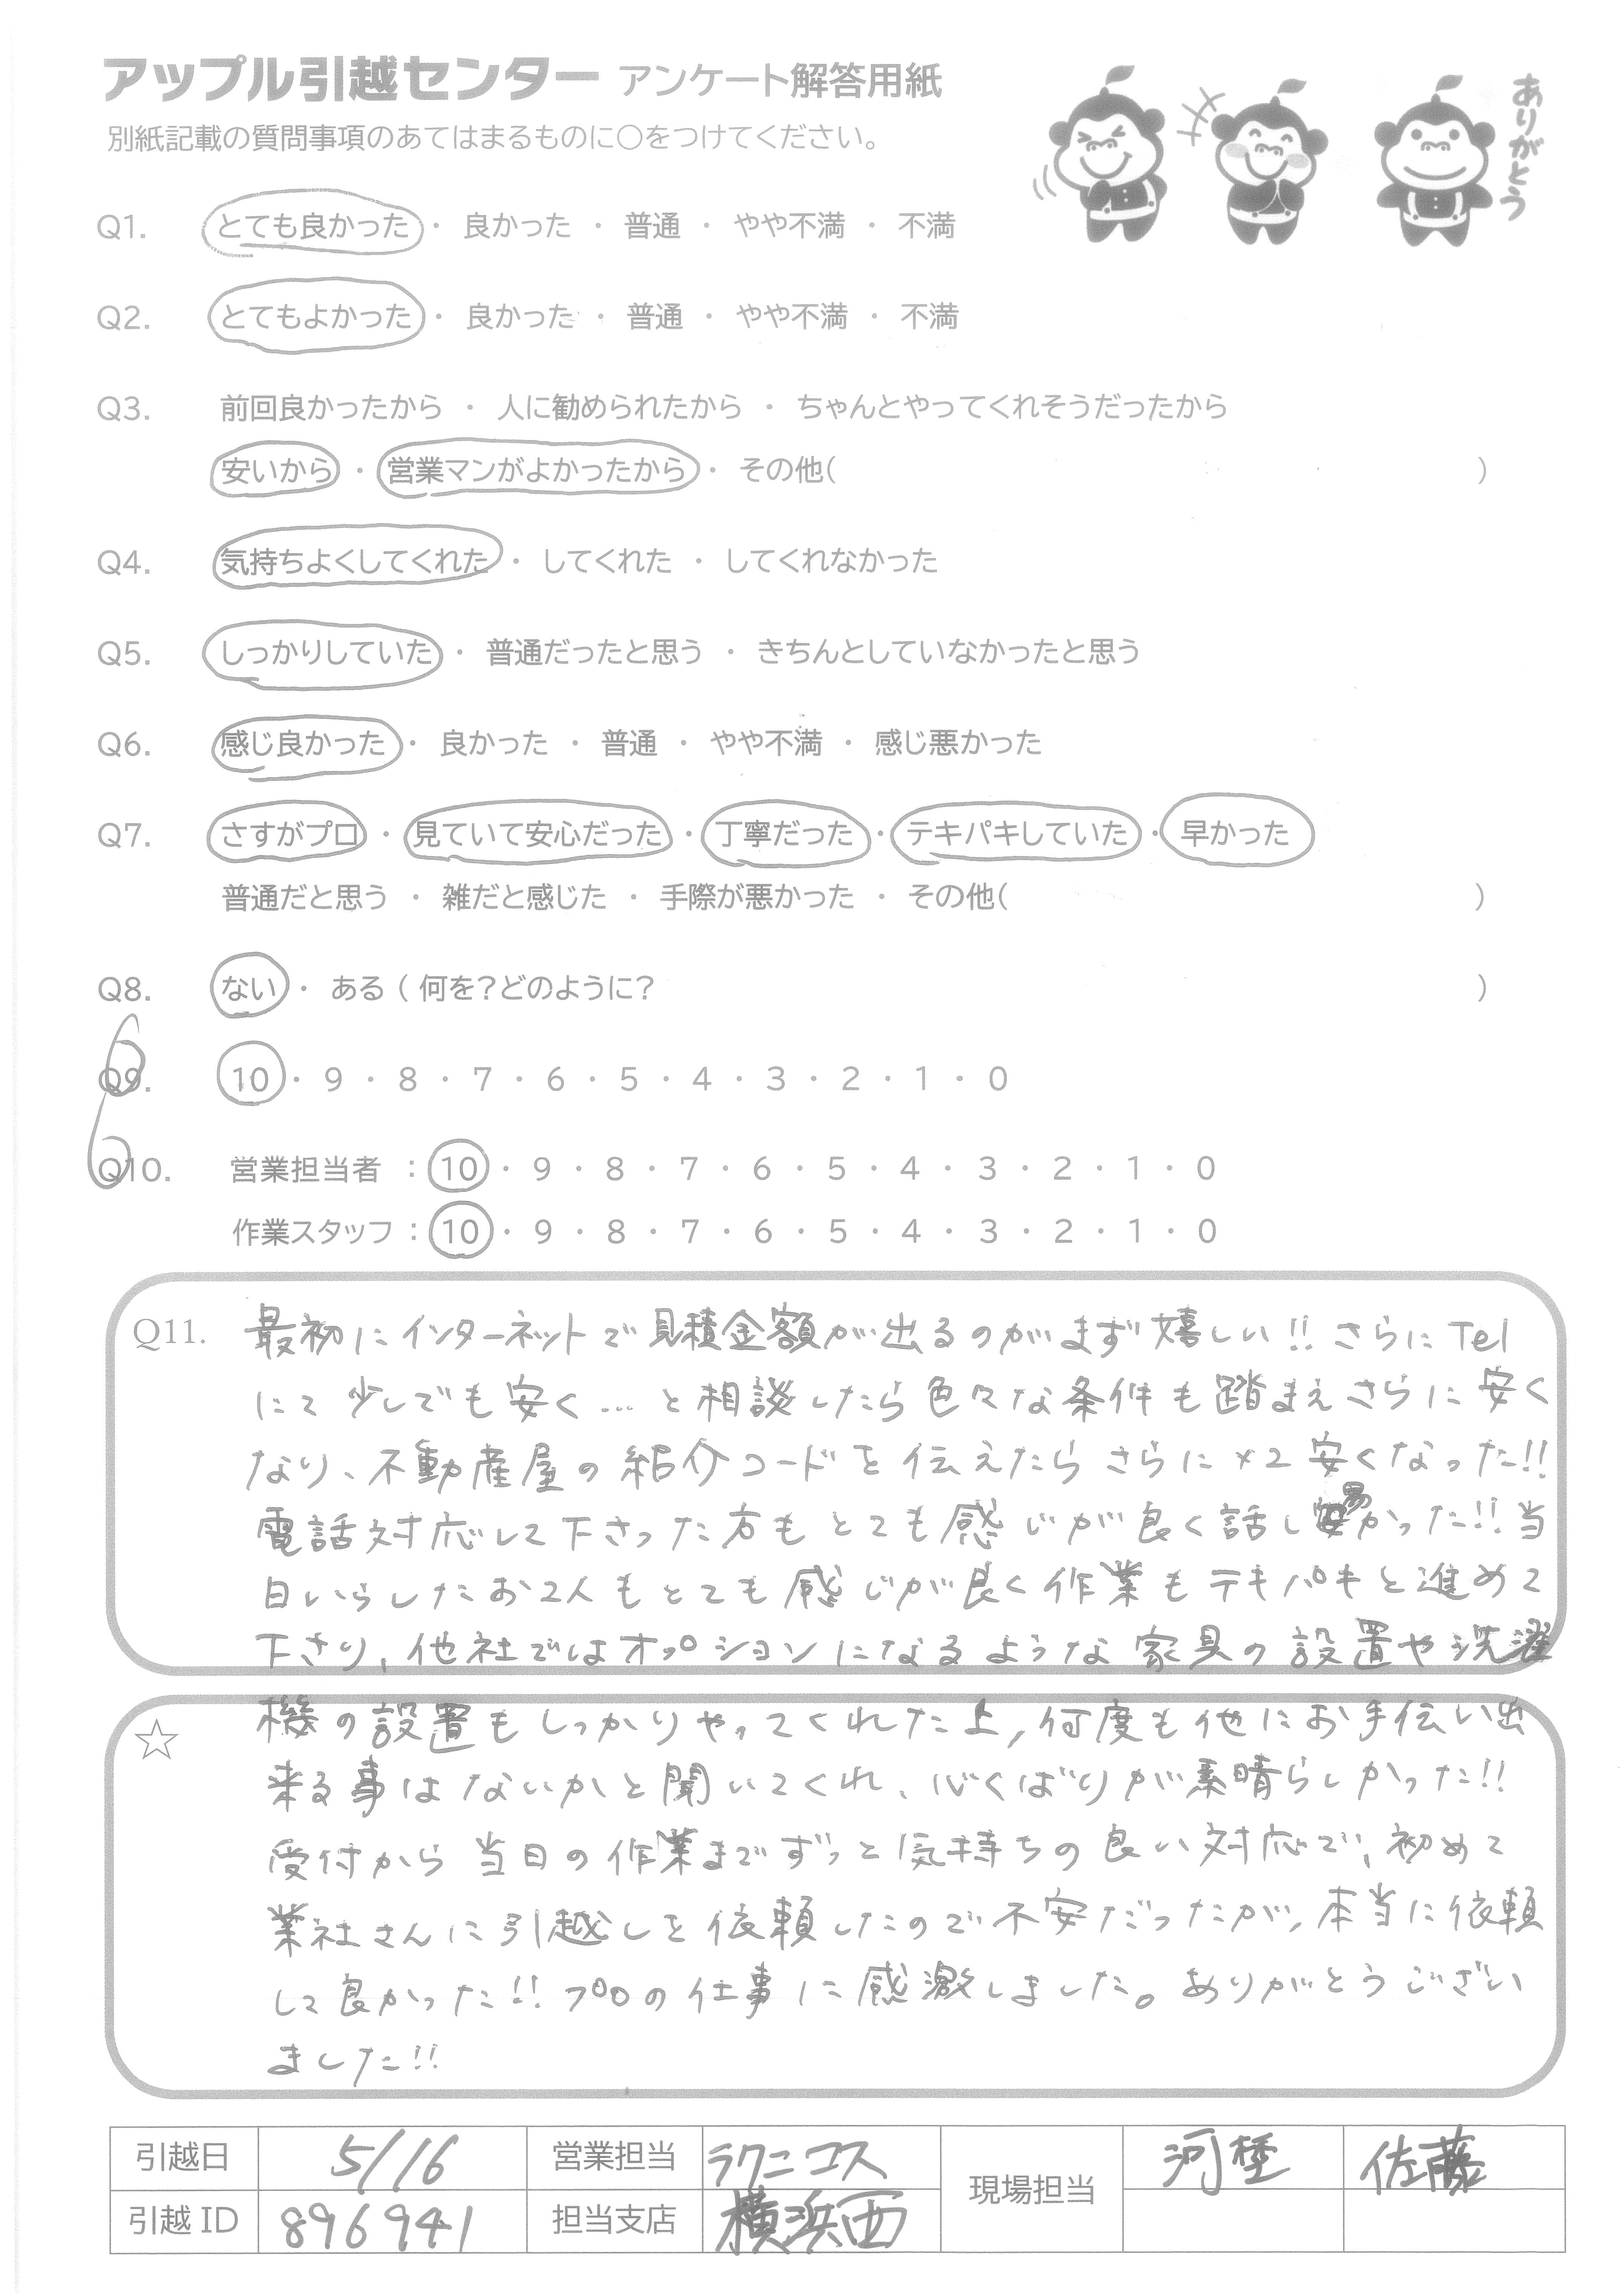 アップル引越センター アンケート解答用紙
ありがとう
別紙記載の質問事項のあてはまるものに○をつけてください。
Q1. とても良かった ・ 良かった ・ 普通 ・ やや不満 ・ 不満
Q2. とてもよかった ・ 良かった ・ 普通 ・ やや不満 ・ 不満
Q3. 前回良かったから ・ 人に勧められたから ・ ちゃんとやってくれそうだったから
安いから ・ 営業マンがよかったから ・ その他( )
Q4. 気持ちよくしてくれた ・ してくれた ・ してくれなかった
Q5. しっかりしていた ・ 普通だったと思う ・ きちんとしていなかったと思う
Q6. 感じ良かった ・ 良かった ・ 普通 ・ やや不満 ・ 感じ悪かった
Q7. さすがプロ ・ 見ていて安心だった ・ 丁寧だった ・ テキパキしていた ・ 早かった
普通だと思う ・ 雑だと感じた ・ 手際が悪かった ・ その他( )
Q8. ない ・ ある ( 何を?どのように? )
Q9. 10 ・ 9 ・ 8 ・ 7 ・ 6 ・ 5 ・ 4 ・ 3 ・ 2 ・ 1 ・ 0
Q10. 営業担当者 : 10 ・ 9 ・ 8 ・ 7 ・ 6 ・ 5 ・ 4 ・ 3 ・ 2 ・ 1 ・ 0
作業スタッフ : 10 ・ 9 ・ 8 ・ 7 ・ 6 ・ 5 ・ 4 ・ 3 ・ 2 ・ 1 ・ 0
Q11. 最初にインターネットで見積金額が出るのがまず嬉しい!! さらにTel
にて少しでも安く…と相談したら色々な条件も踏まえさらに安く
なり、不動産屋の紹介コードを伝えたらさらに×2安くなった!!
電話対応して下さった方もとても感じが良く話し易かった!!当
日いらしたお2人もとても感じが良く作業もテキパキと進めて
下さり、他社ではオプションになるような家具の設置や洗濯
☆ 機の設置もしっかりやってくれた上、何度も他にお手伝い出
来る事はないかと聞いてくれ、心くばりが素晴らしかった!!
受付から当日の作業までずっと気持ちの良い対応で、初めて
業社さんに引越しを依頼したので不安だったが、本当に依頼
して良かった!! プロの仕事に感激しました。ありがとうござい
ました!!
引越日 5/16 営業担当 ラクニコス 現場担当 佐藤
引越ID 896941 担当支店 横浜西